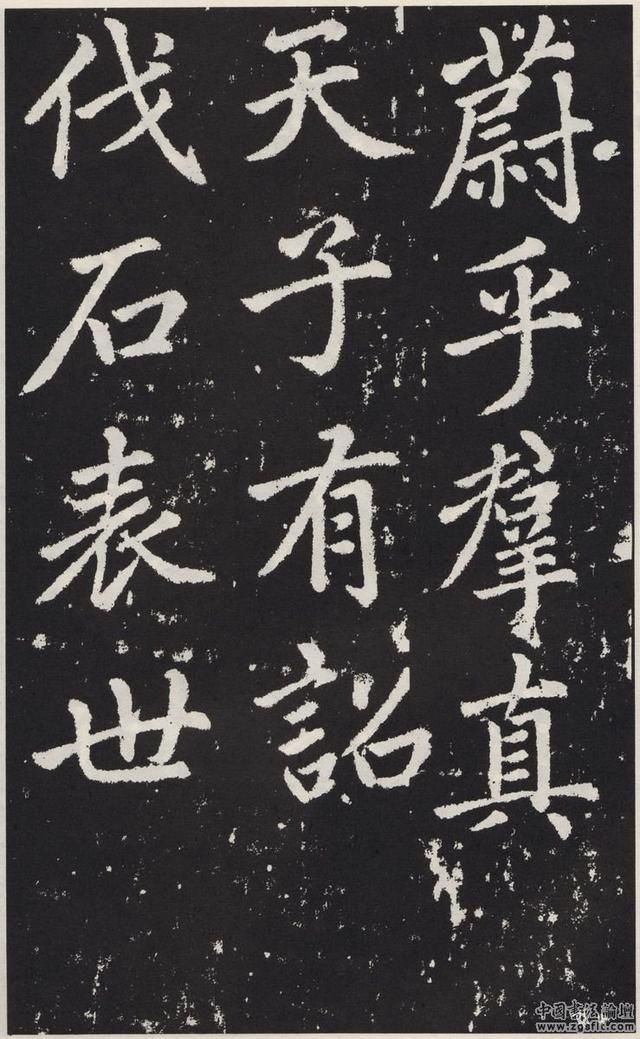 蔚乎羣真
天子有詔
伐石表世
中国书法论坛
www.zgsflt.com